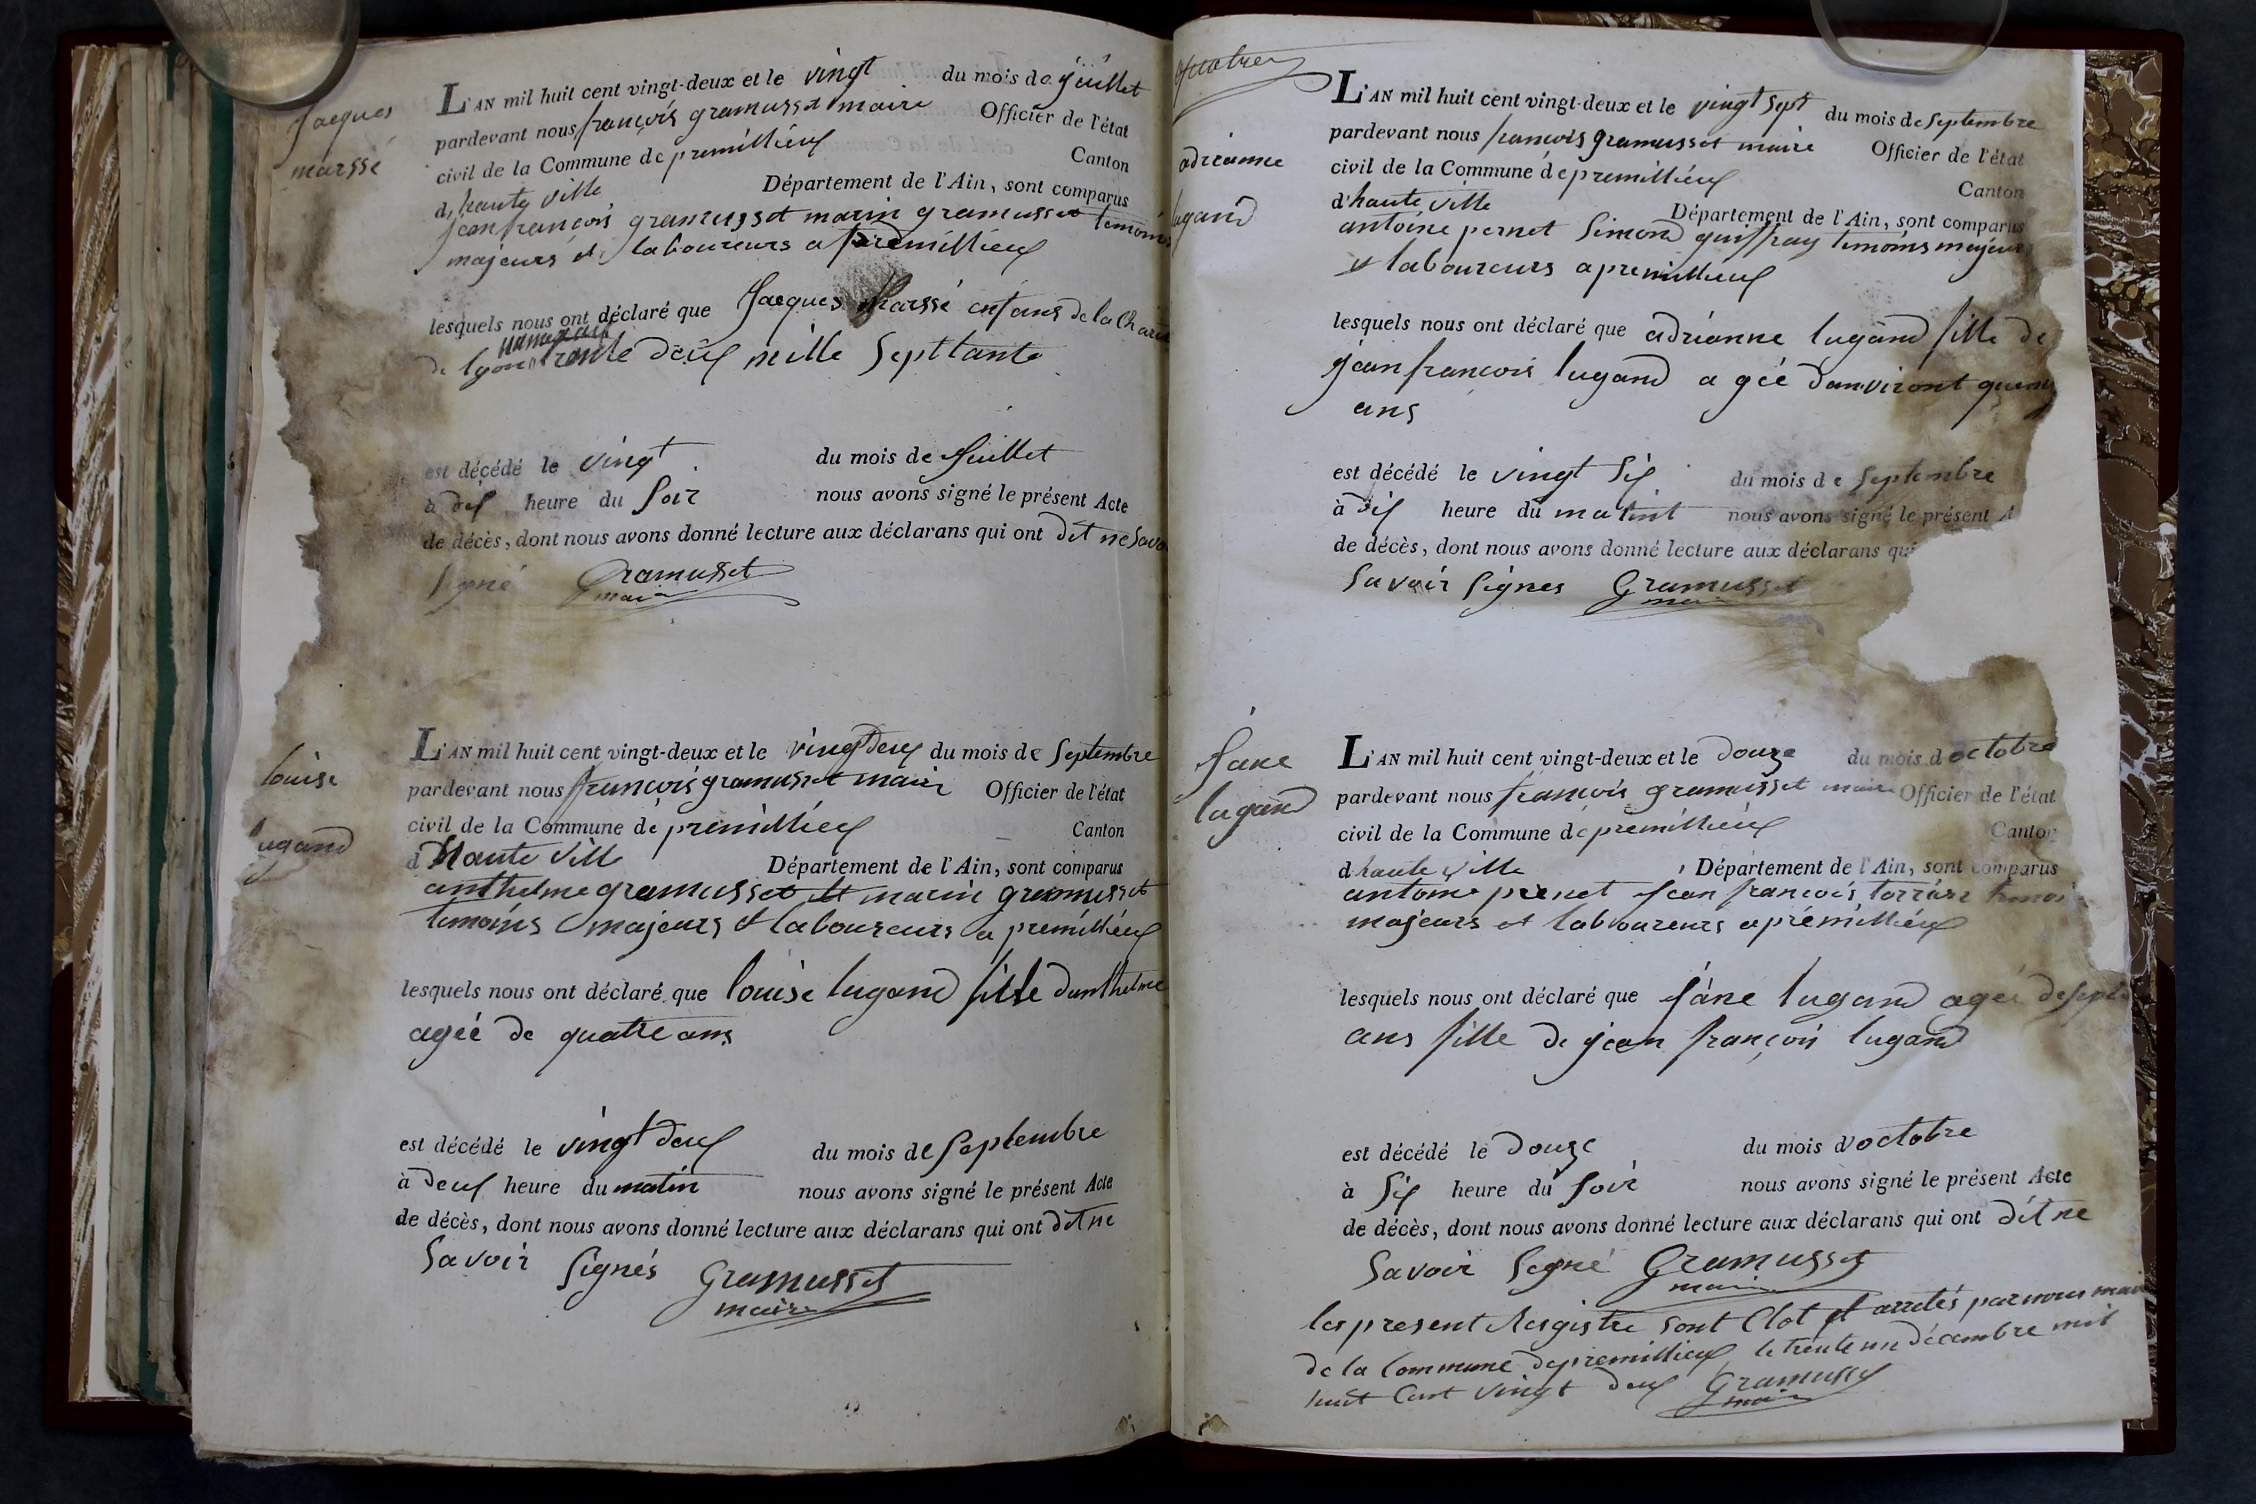 Jacques
marssé
L'AN mil huit cent vingt-deux et le vingt du mois de juillet
pardevant nous françois gramusset maire Officier de l'état
civil de la Commune de premillieux Canton
d'haute ville Département de l'Ain, sont comparus
jean françois gramusset marin gramusset temoins
majeurs et laboureurs a premillieux
lesquels nous ont déclaré que Jacques Marssé enfans de la Charité
de lyon numéraut trante deux mille Septtante
est décédé le vingt du mois de Juillet
à dix heure du Soir nous avons signé le présent Acte
de décès, dont nous avons donné lecture aux déclarans qui ont dit ne Savoir
Signé Gramusset
maire
louise
lugand
L'AN mil huit cent vingt-deux et le vingt deux du mois de Septembre
pardevant nous françois gramusset maire Officier de l'état
civil de la Commune de premillieux Canton
d'Haute Ville Département de l'Ain, sont comparus
anthelme gramusset et marin gramusset
temoins majeurs et laboureurs a premillieux
lesquels nous ont déclaré que louise lugand fille danthelme
agéé de quatre ans
est décédé le vingt deux du mois de Septembre
à deux heure du matin nous avons signé le présent Acte
de décès, dont nous avons donné lecture aux déclarans qui ont dit ne
Savoir Signés Gramusset
maire
quatre
adrianne
lugand
L'AN mil huit cent vingt-deux et le vingt Sept du mois de Septembre
pardevant nous françois gramusset maire Officier de l'état
civil de la Commune de premillieux Canton
d'haute ville Département de l'Ain, sont comparus
antoine pernet Simond guiffray temoins majeurs
et laboureurs a premillieux
lesquels nous ont déclaré que adrianne lugand fille de
jean françois lugand a géé danviront
ans
est décédé le vingt Six du mois de Septembre
à dix heure du matint nous avons signé le présent A
de décès, dont nous avons donné lecture aux déclarans qui
Savoir Signes Gramusset
maire
Jane
lugand
L'AN mil huit cent vingt-deux et le douze du mois d'octobre
pardevant nous françois gramusset maire Officier de l'état
civil de la Commune de premillieux Canton
d'haute ville Département de l'Ain, sont comparus
antoine pernet Jean françois temoi
majeurs et laboureurs a premillieux
lesquels nous ont déclaré que Jane lugand agéé de Sept
ans fille de jean françois lugand
est décédé le douze du mois d'octobre
à Six heure du Soir nous avons signé le présent Acte
de décès, dont nous avons donné lecture aux déclarans qui ont dit ne
Savoir Signé Gramusset
maire
les present Registre sont Clot et arretés par nous maire
de la Commune de premillieux le trente un décembre mil
huit Cent vingt deux Gramusset
maire